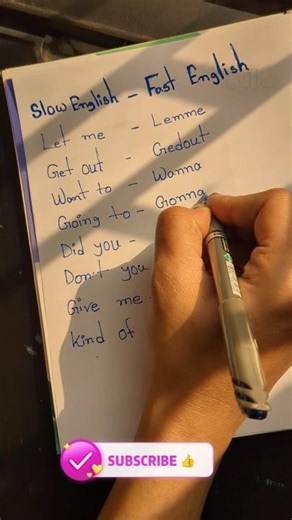 Slow English - Fast English
Let me - Lemme
Get out - Gedout
Want to - Wanna
Going to - Gonna
Did you -
Don't you
Give me
kind of
SUBSCRIBE 👍